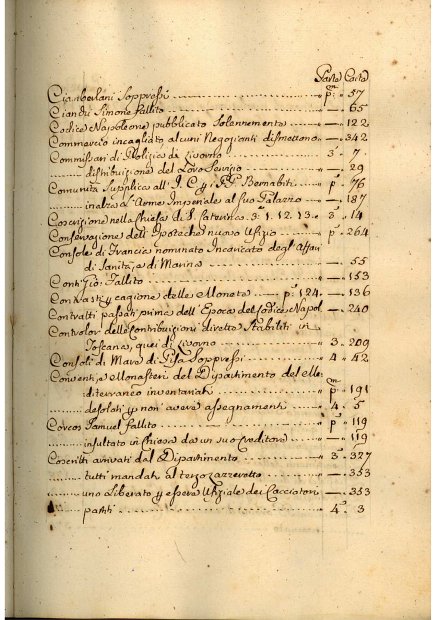 Parte Carta
Ciamberlani Soppressi p.ma 57
Ciandri Simone fallito " — 65
Codice Napoleone pubblicato Solennemente " — 122
Commercio incagliato, alcuni Negozianti dismettono — 342
Commissari di Polizia di Livorno 3. 7
distribuzione del Loro Servizio " — 29
Comunità Supplica all' I. C. PP. Bernabiti p. 76
inalza l'Arme Imperiale al suo Palazzo — 187
Coscrizione nella Chiesa di S. Caterina 3. 1. 12. 13. 3. 14
Conservazione dell'Ipoteche nuovo Ufizio p. 264
Console di Francia nominato Incaricato degl'Affari
di Sanità, e di Marina " — 55
Contigio Fallito " — 153
Contrasti p cagione delle Monete — p. 124. — 136
Contratti passati prima dell'Epoca del Codice Napol. — 240
Controlor delle Contribuzioni dirette Stabiliti in
Toscana, quei di Livorno " 3. 209
Consoli di Mare di Pisa Soppressi " 4. 42
Conventi, e Monasteri del Dipartimento del Me-
diterraneo inventariati p.mo 191
desolati p non avere assegnamenti " 4. 5
Corcos Samuel fallito " p.mo 119
insultato in Chiesa da un suo Creditore " — 119
Coscritti arrivati dal Dipartimento " 3. 327
tutti mandati al terzo Lazzeretto " — 353
uno Liberato p essere Ufiziale dei Cacciatori — 353
partiti " 4. 3